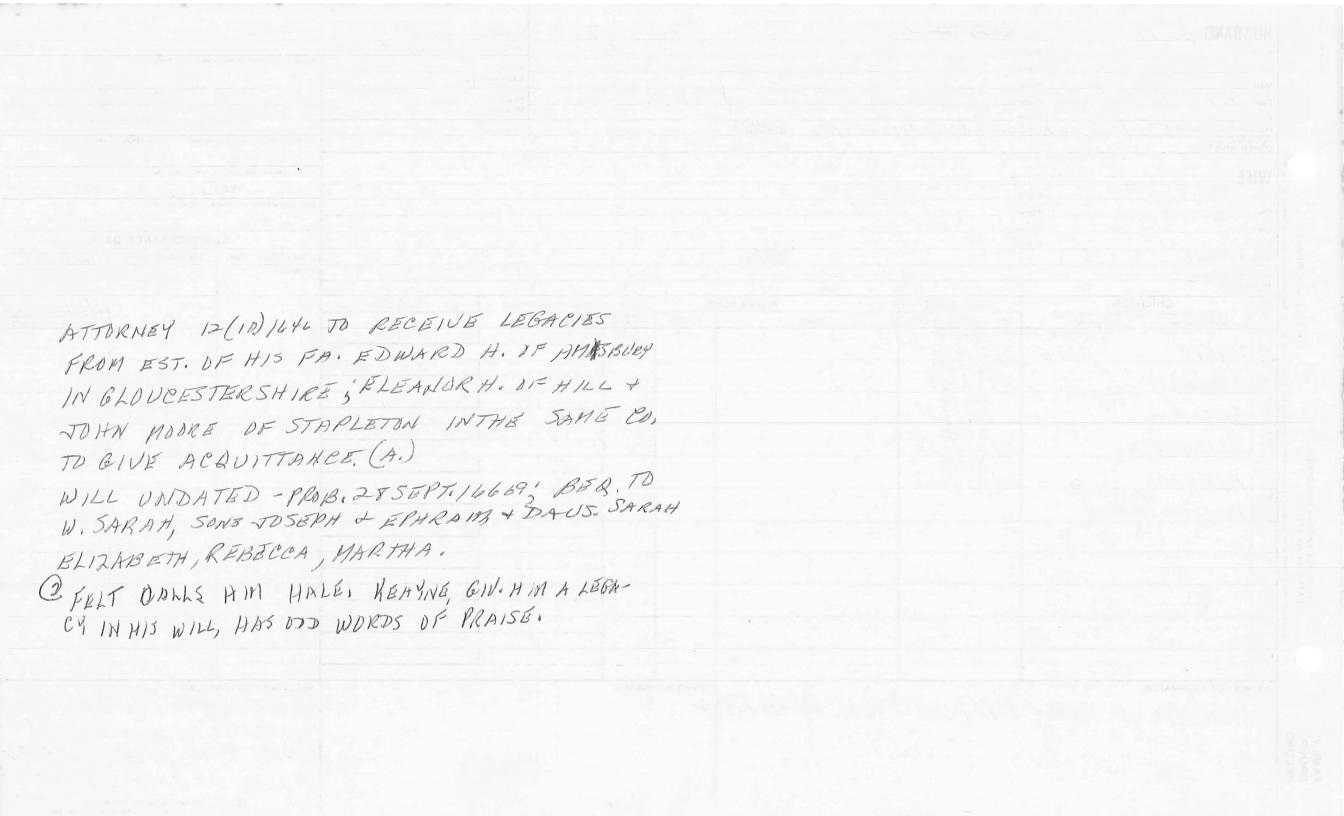 ATTORNEY 12(10)1646 TO RECEIVE LEGACIES
FROM EST. OF HIS FA. EDWARD H. OF AMESBURY
IN GLOUCESTERSHIRE; ELEANOR H. OF HILL +
JOHN MOORE OF STAPLETON IN THE SAME CO.
TO GIVE ACQUITTANCE. (A.)
WILL UNDATED - PROB. 28 SEPT. 16669; BEQ. TO
W. SARAH, SONS JOSEPH + EPHRAIM, + DAUS. SARAH
ELIZABETH, REBECCA, MARTHA.
② FELT CALLS HIM HALE. KEAYNE, GIV. HIM A LEGA-
CY IN HIS WILL, HAS ODD WORDS OF PRAISE.
HUSBAND
WIFE